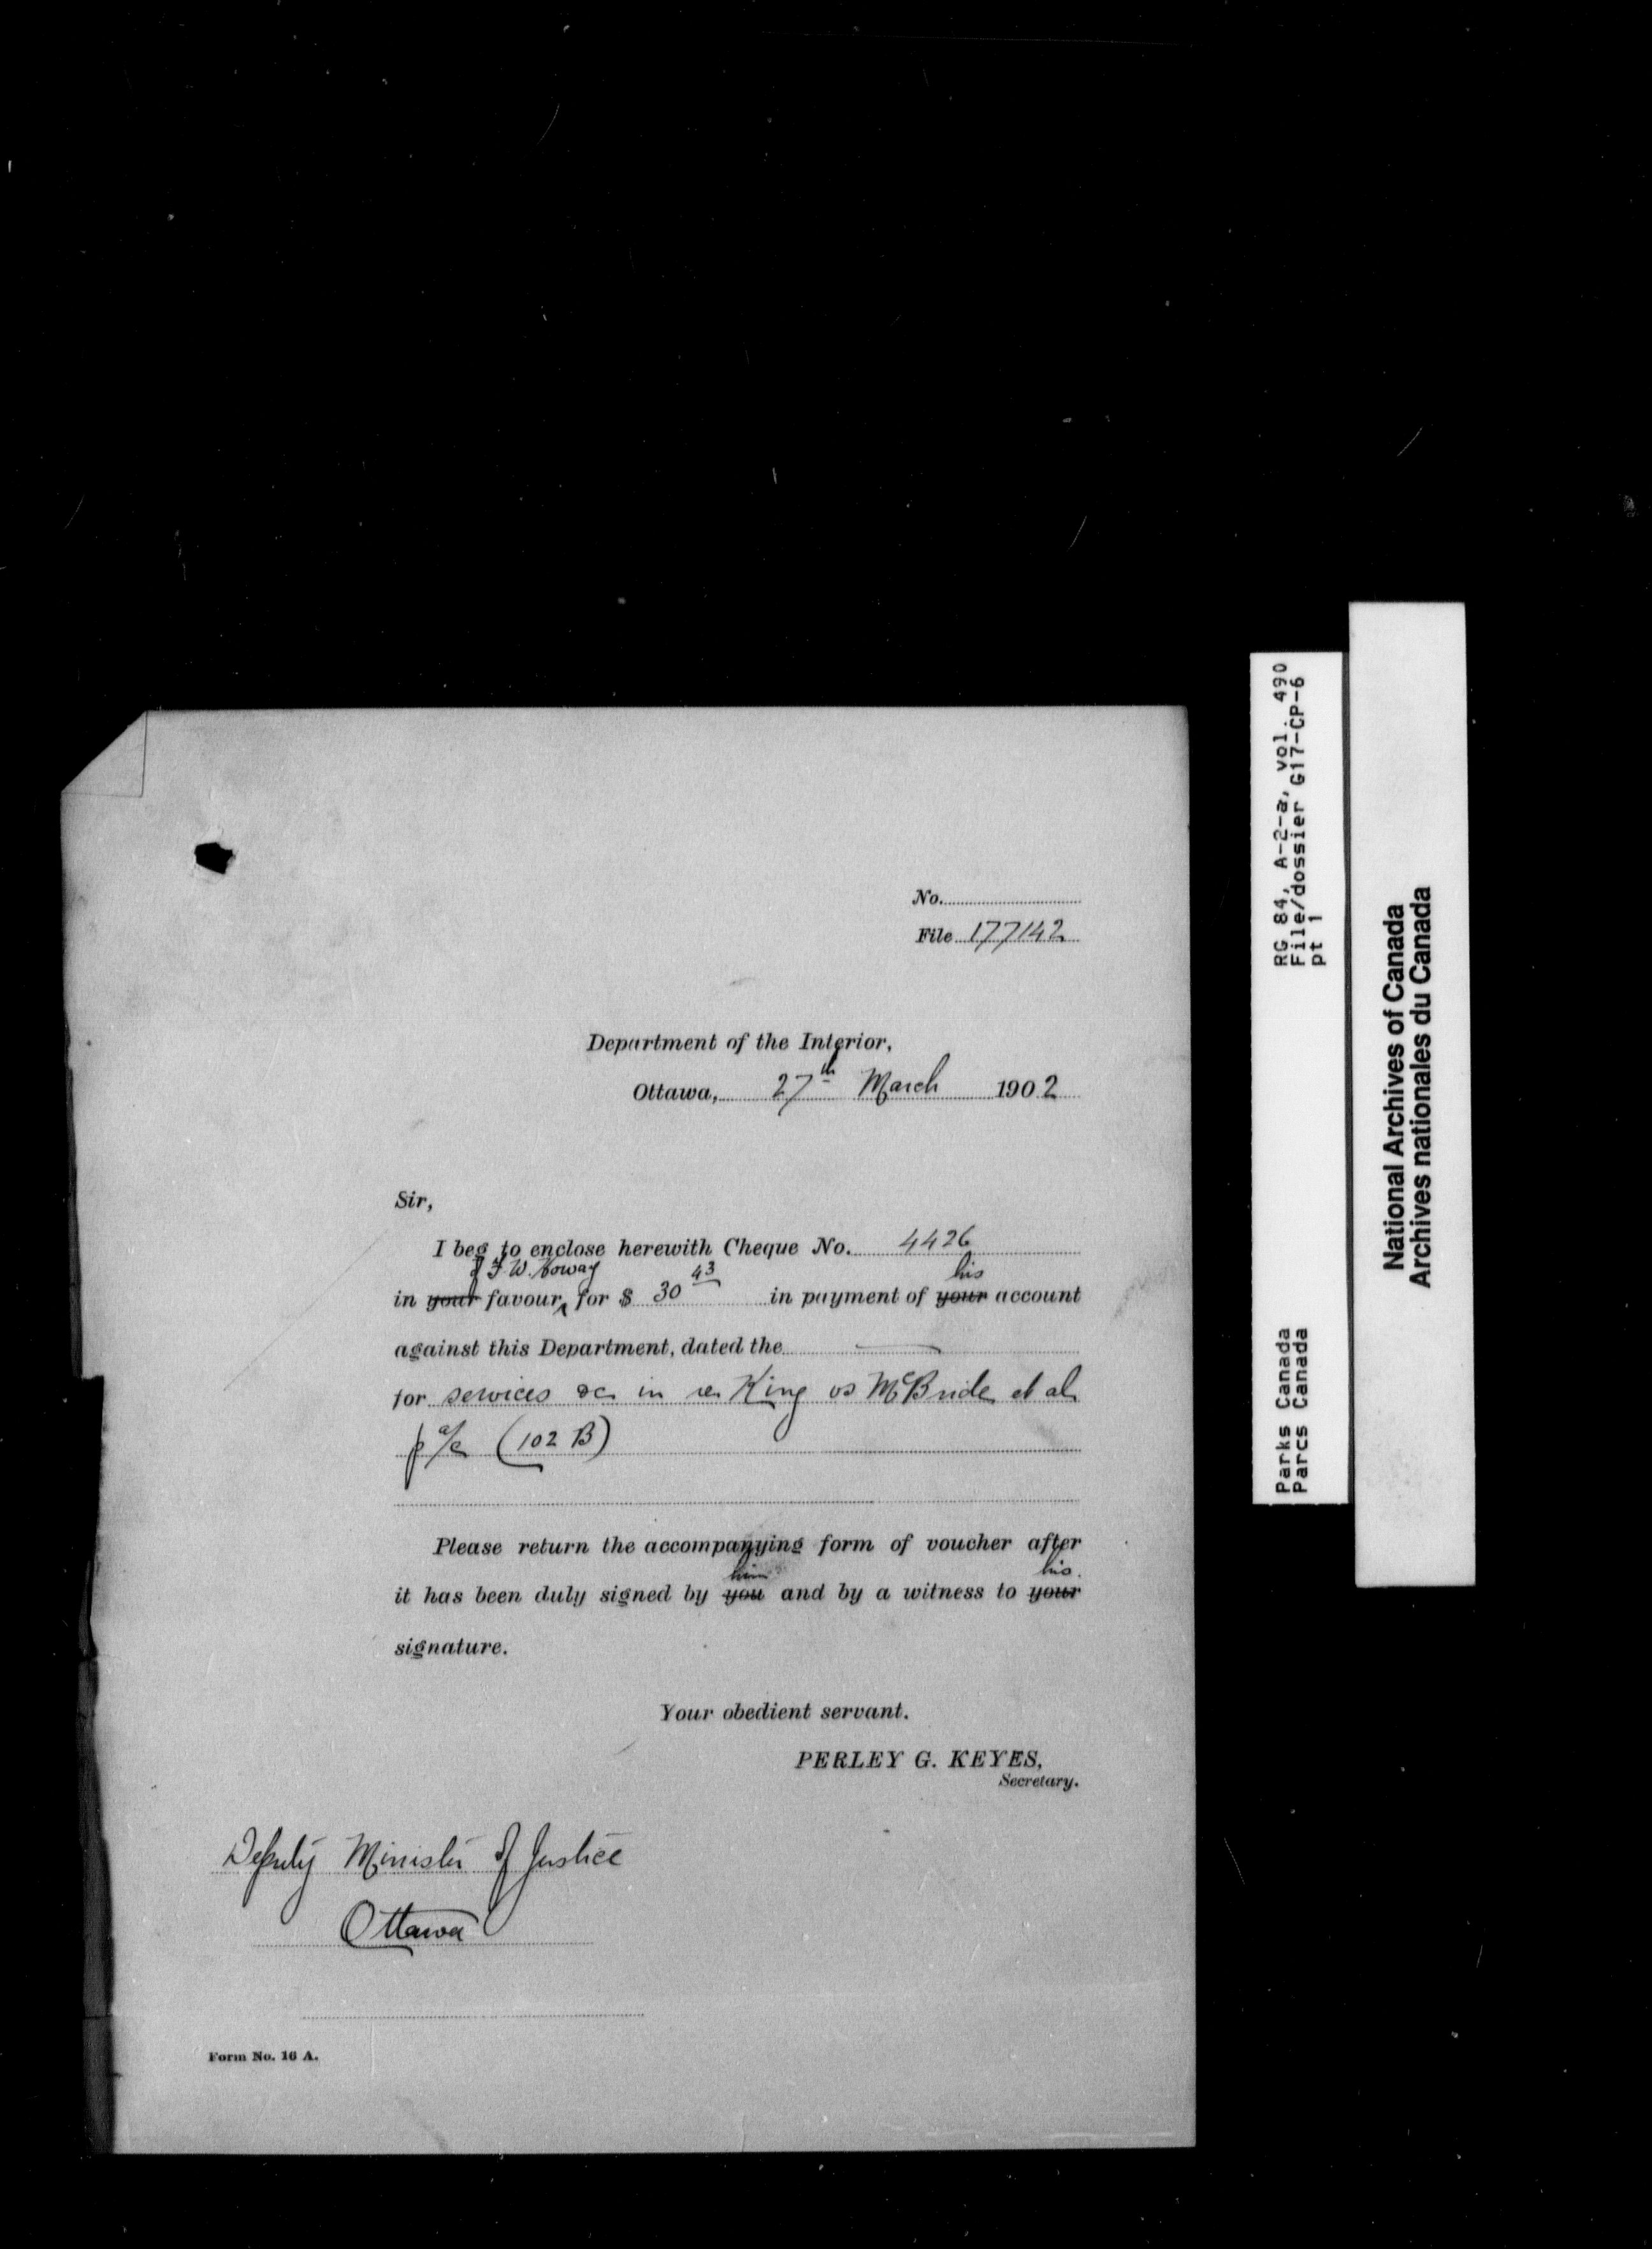 No.
File 177142
Department of the Interior,
Ottawa, 27th March 1902
Sir,
I beg to enclose herewith Cheque No. 4426
of F. W. Howay 43 his
in your favour, for $ 30 in payment of your account
against this Department, dated the
for services &c in re King vs McBride et al
p a/c (102 B)
Please return the accompanying form of voucher after
him his.
it has been duly signed by you and by a witness to your
signature.
Your obedient servant.
PERLEY G. KEYES,
Secretary.
Deputy Minister of Justice
Ottawa
Form No. 16 A.
RG 84, A-2-a, vol. 490
File/dossier G17-CP-6
pt 1
Parks Canada
Parcs Canada
National Archives of Canada
Archives nationales du Canada